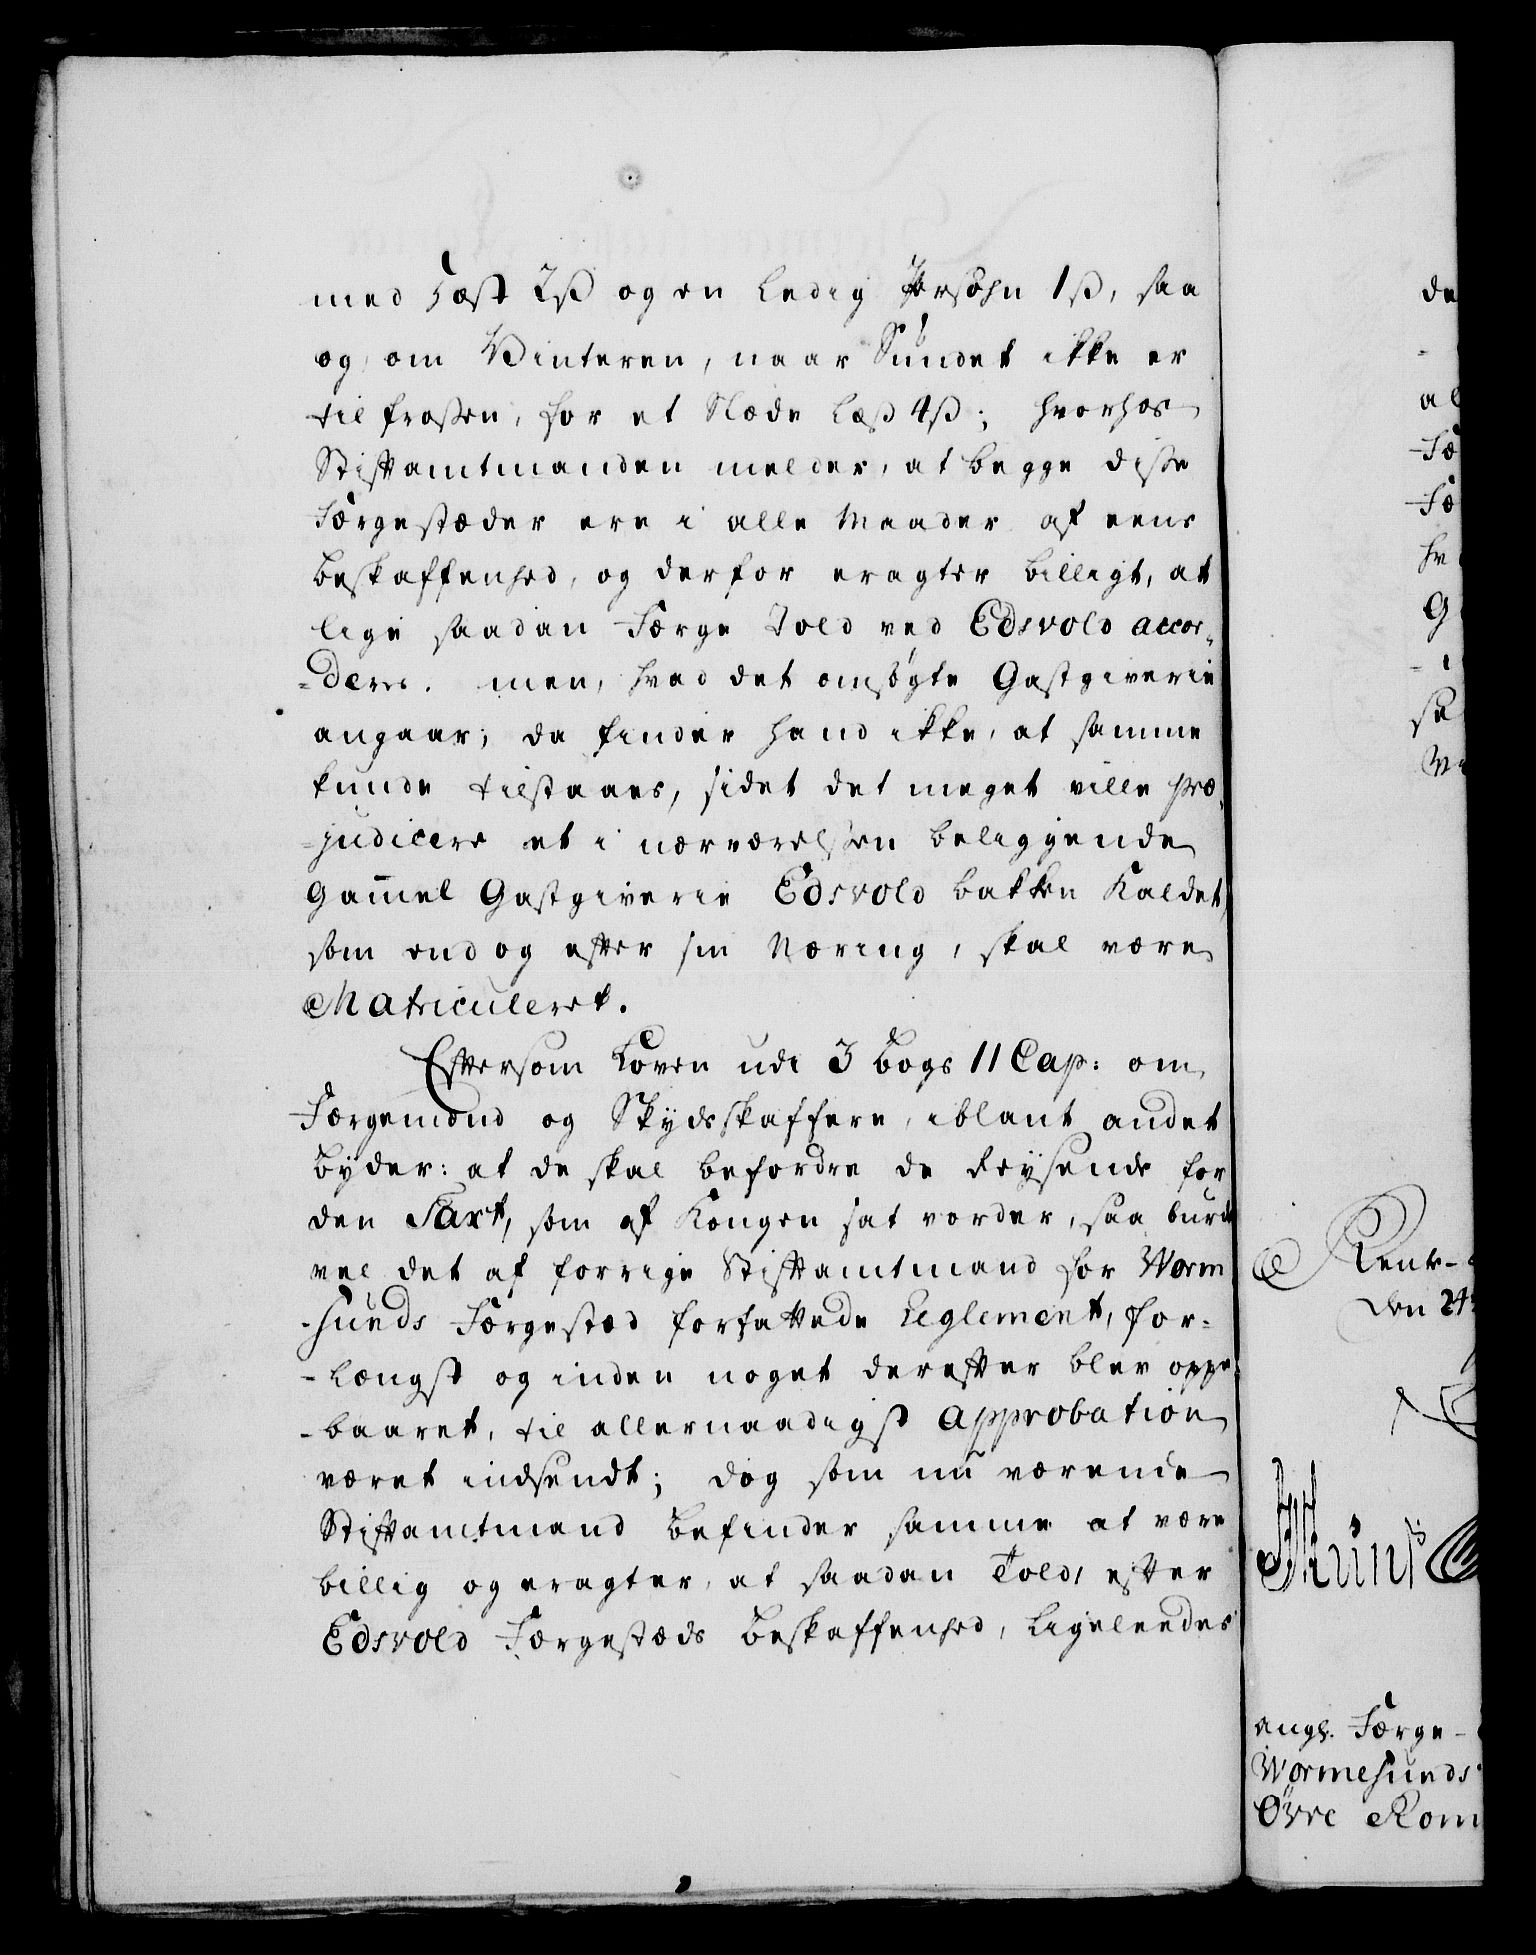 med Hæst 2ß og en ledig Persohn 1ß, saa
og om Vinteren, naar Sundet ikke er
tilfrossen, for et Slæde læß 4ß; hvorhos
Stiftamtmanden melder, at begge disse
Færgestæder ere i alle Maader af eens
beskaffenhed, og derfor eragter billigt, at
lige saadan Færge Told ved Edsvold accor-
-deres. men, hvad det omsøgte Gastgiverie
angaar; da finder hand ikke, at samme
kunde tilstaaes, sidet det meget ville præ-
-judicere et i nærværelsen beliggende
Gam̅el Gastgiverie Edsvold bakken Kaldet,
som endog efter sin Næring, skal være
Matriculeret.
Eftersom Loven udi 3 bogs 11 Cap: om
Færgemænd og Skydsskaffere, iblant andet
byder: at de skal befordre de Reysende for
den Taxt, som af Kongen sat vorder, saa burde
vel det af forrige Stiftamtmand for Worm
-sunds Færgestæd forfattede Reglement, for-
-længst og inden noget derefter blev oppe
-baaret, til allernaadigst Approbation
været indsendt; dog som nu værende
Stiftamtmand befinder samme at være
billig og eragter, at saadan Told, efter
Edsvold Færgestæds beskaffenhed, ligeleedes
de
al
Fæ
Fæ
hv
G
sa
Rente-
den 24
angl. Færge-
Wormesunds
Øvre Rom